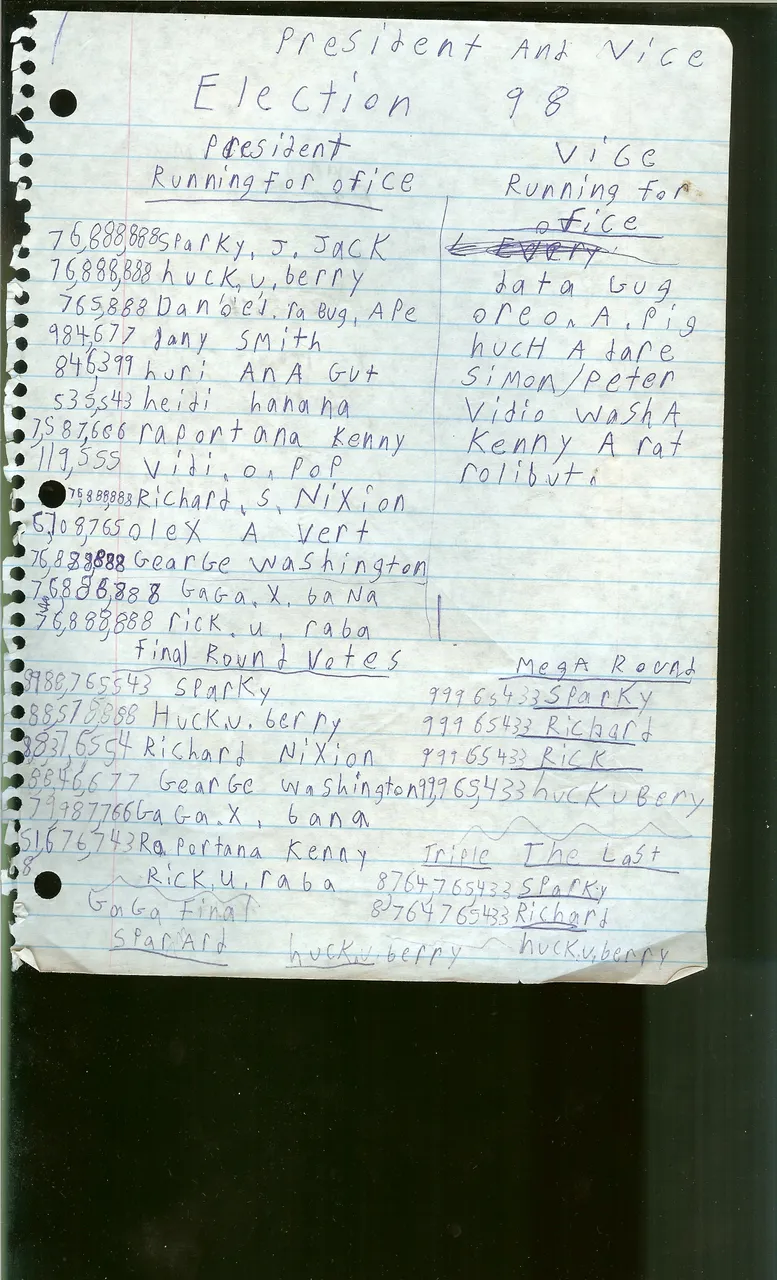 President And Vice
Election 98
President
Running For ofice
76,888,888 Sparky. J. Jack
76,888,888 huck.u.berry
765,888 Dan'oe's. ra Bug, Ape
984,677 Jany Smith
846,399 huri AnA Gut
535,543 heidi hanana
7,587,666 raportana Kenny
119,555 Vidi.o.pop
76,888,888 Richard. S. Nixion
6,708,765 olex A Vert
76,888,888 GearGe Washington
76,888,888 GaGa. X. baNa
76,888,888 rick. u. raba
ViGe
Running for
ofice
Every
data Gug
oreo. A. pig
hucH A dare
Simon/Peter
Vidio WashA
Kenny A rat
rolibut.
Final Round Votes
8988,765543 Sparky
88578,888 Huck.u.berry
8,837,6554 Richard Nixion
8846,677 GearGe Washington
79,987766 Ga Ga. X. bana
51,676,743 Raportana Kenny
8 Rick. U. raba
GaGa Final
SparArd
huck.u.berry
MegA Round
999 65433 Sparky
999 65433 Richard
999 65433 Rick
99,965,433 huckuBery
Triple The Last
8764765433 Sparky
8764765433 Richard
huck.u.berry